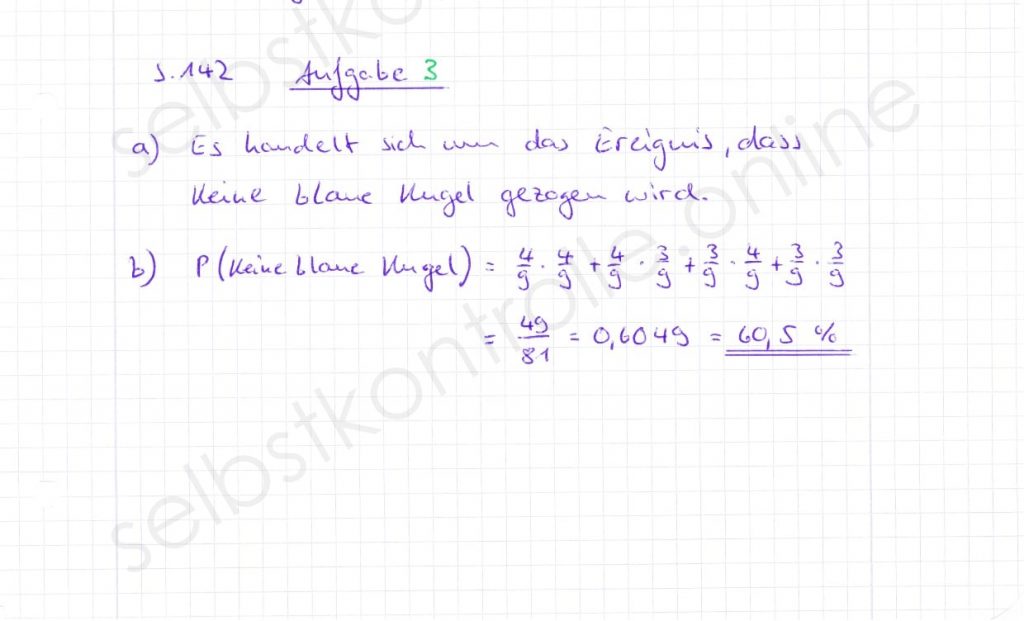 S. 142 Aufgabe 3
a) Es handelt sich um das Ereignis, dass
keine blaue Kugel gezogen wird.
b) P(keine blaue Kugel) = 4/9 · 4/9 + 4/9 · 3/9 + 3/9 · 4/9 + 3/9 · 3/9
= 49/81 = 0,6049 = 60,5 %
selbstkontrolle.online
selbstko